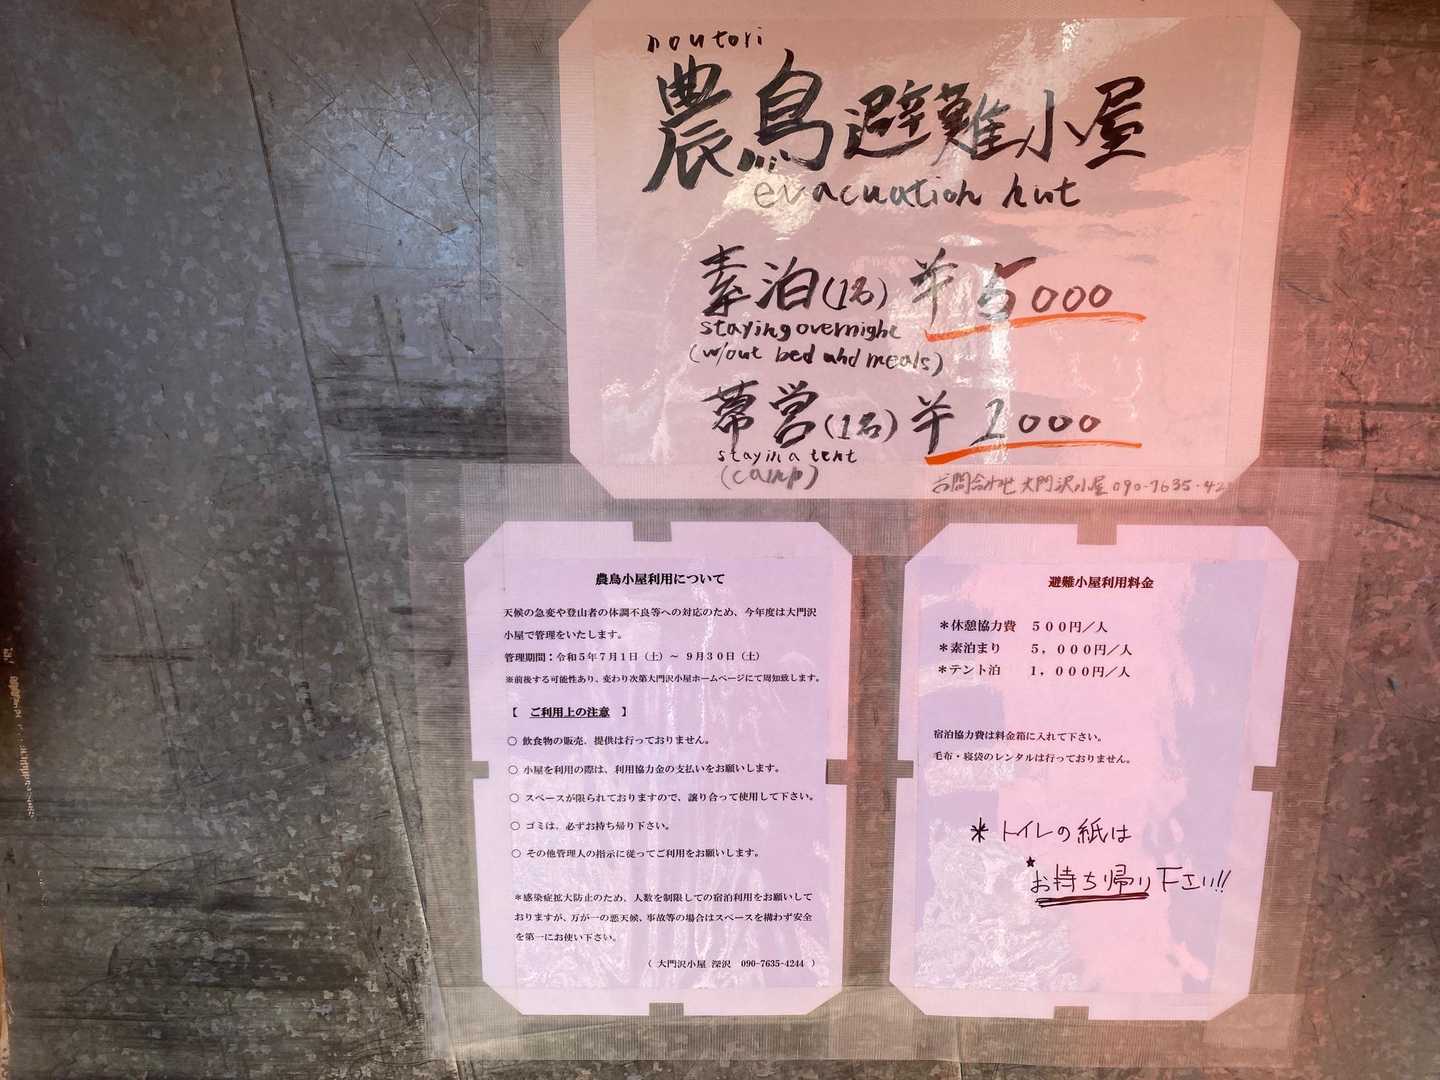 noutori
農鳥避難小屋
evacuation hut
素泊(1名) ¥5000
staying overnight
(w/out bed and meals)
幕営(1名) ¥1000
stay in a tent
(camp)
お問合わせ 大門沢小屋 090-7635-42
農鳥小屋利用について
天候の急変や登山者の体調不良等への対応のため、今年度は大門沢
小屋で管理をいたします。
管理期間：令和5年7月1日（土）～ 9月30日（土）
※前後する可能性あり、変わり次第大門沢小屋ホームページにて周知致します。
【 ご利用上の注意 】
○ 飲食物の販売、提供は行っておりません。
○ 小屋を利用の際は、利用協力金の支払いをお願いします。
○ スペースが限られておりますので、譲り合って使用して下さい。
○ ゴミは、必ずお持ち帰り下さい。
○ その他管理人の指示に従ってご利用をお願いします。
＊感染症拡大防止のため、人数を制限しての宿泊利用をお願いして
おりますが、万が一の悪天候、事故等の場合はスペースを構わず安全
を第一にお使い下さい。
（ 大門沢小屋 深沢 090-7635-4244 ）
避難小屋利用料金
＊休憩協力費 ５００円／人
＊素泊まり ５，０００円／人
＊テント泊 １，０００円／人
宿泊協力費は料金箱に入れて下さい。
毛布・寝袋のレンタルは行っておりません。
＊トイレの紙は
★お持ち帰り下エい!!